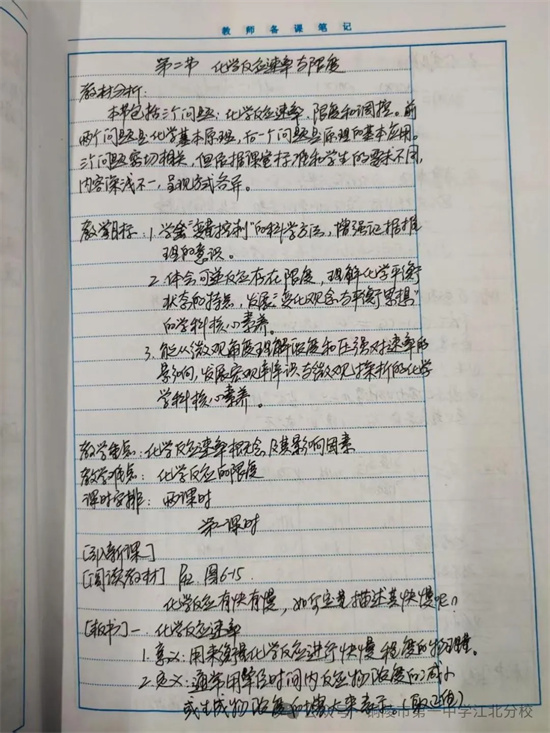 教师备课笔记
第二节 化学反应速率与限度
教材分析:
本节包括三个问题:化学反应速率、限度和调控。前
两个问题是化学基本原理,后一个问题是原理的基本应用。
三个问题密切相关,但依据课程标准和学生的要求不同,
内容深浅不一,呈现方式各异。
教学目标:1.学会“变量控制”的科学方法,增强证据推
理的意识。
2.体会可逆反应存在限度,理解化学平衡
状态的特点,发展“变化观念与平衡思想”
的学科核心素养。
3.能从微观角度理解浓度和压强对速率的
影响,发展宏观辨识与微观探析的化学
学科核心素养。
教学重点:化学反应速率概念及其影响因素
教学难点:化学反应的限度
课时安排:两课时
第一课时
[引入新课]
[阅读教材] 图6-15.
化学反应有快有慢,如何定量描述其快慢呢?
[板书]一.化学反应速率
1.意义:用来衡量化学反应进行快慢程度的物理量。
2.定义:通常用单位时间内反应物浓度的减小
或生成物浓度的增大来表示。(取正值)
铜陵市第一中学江北分校